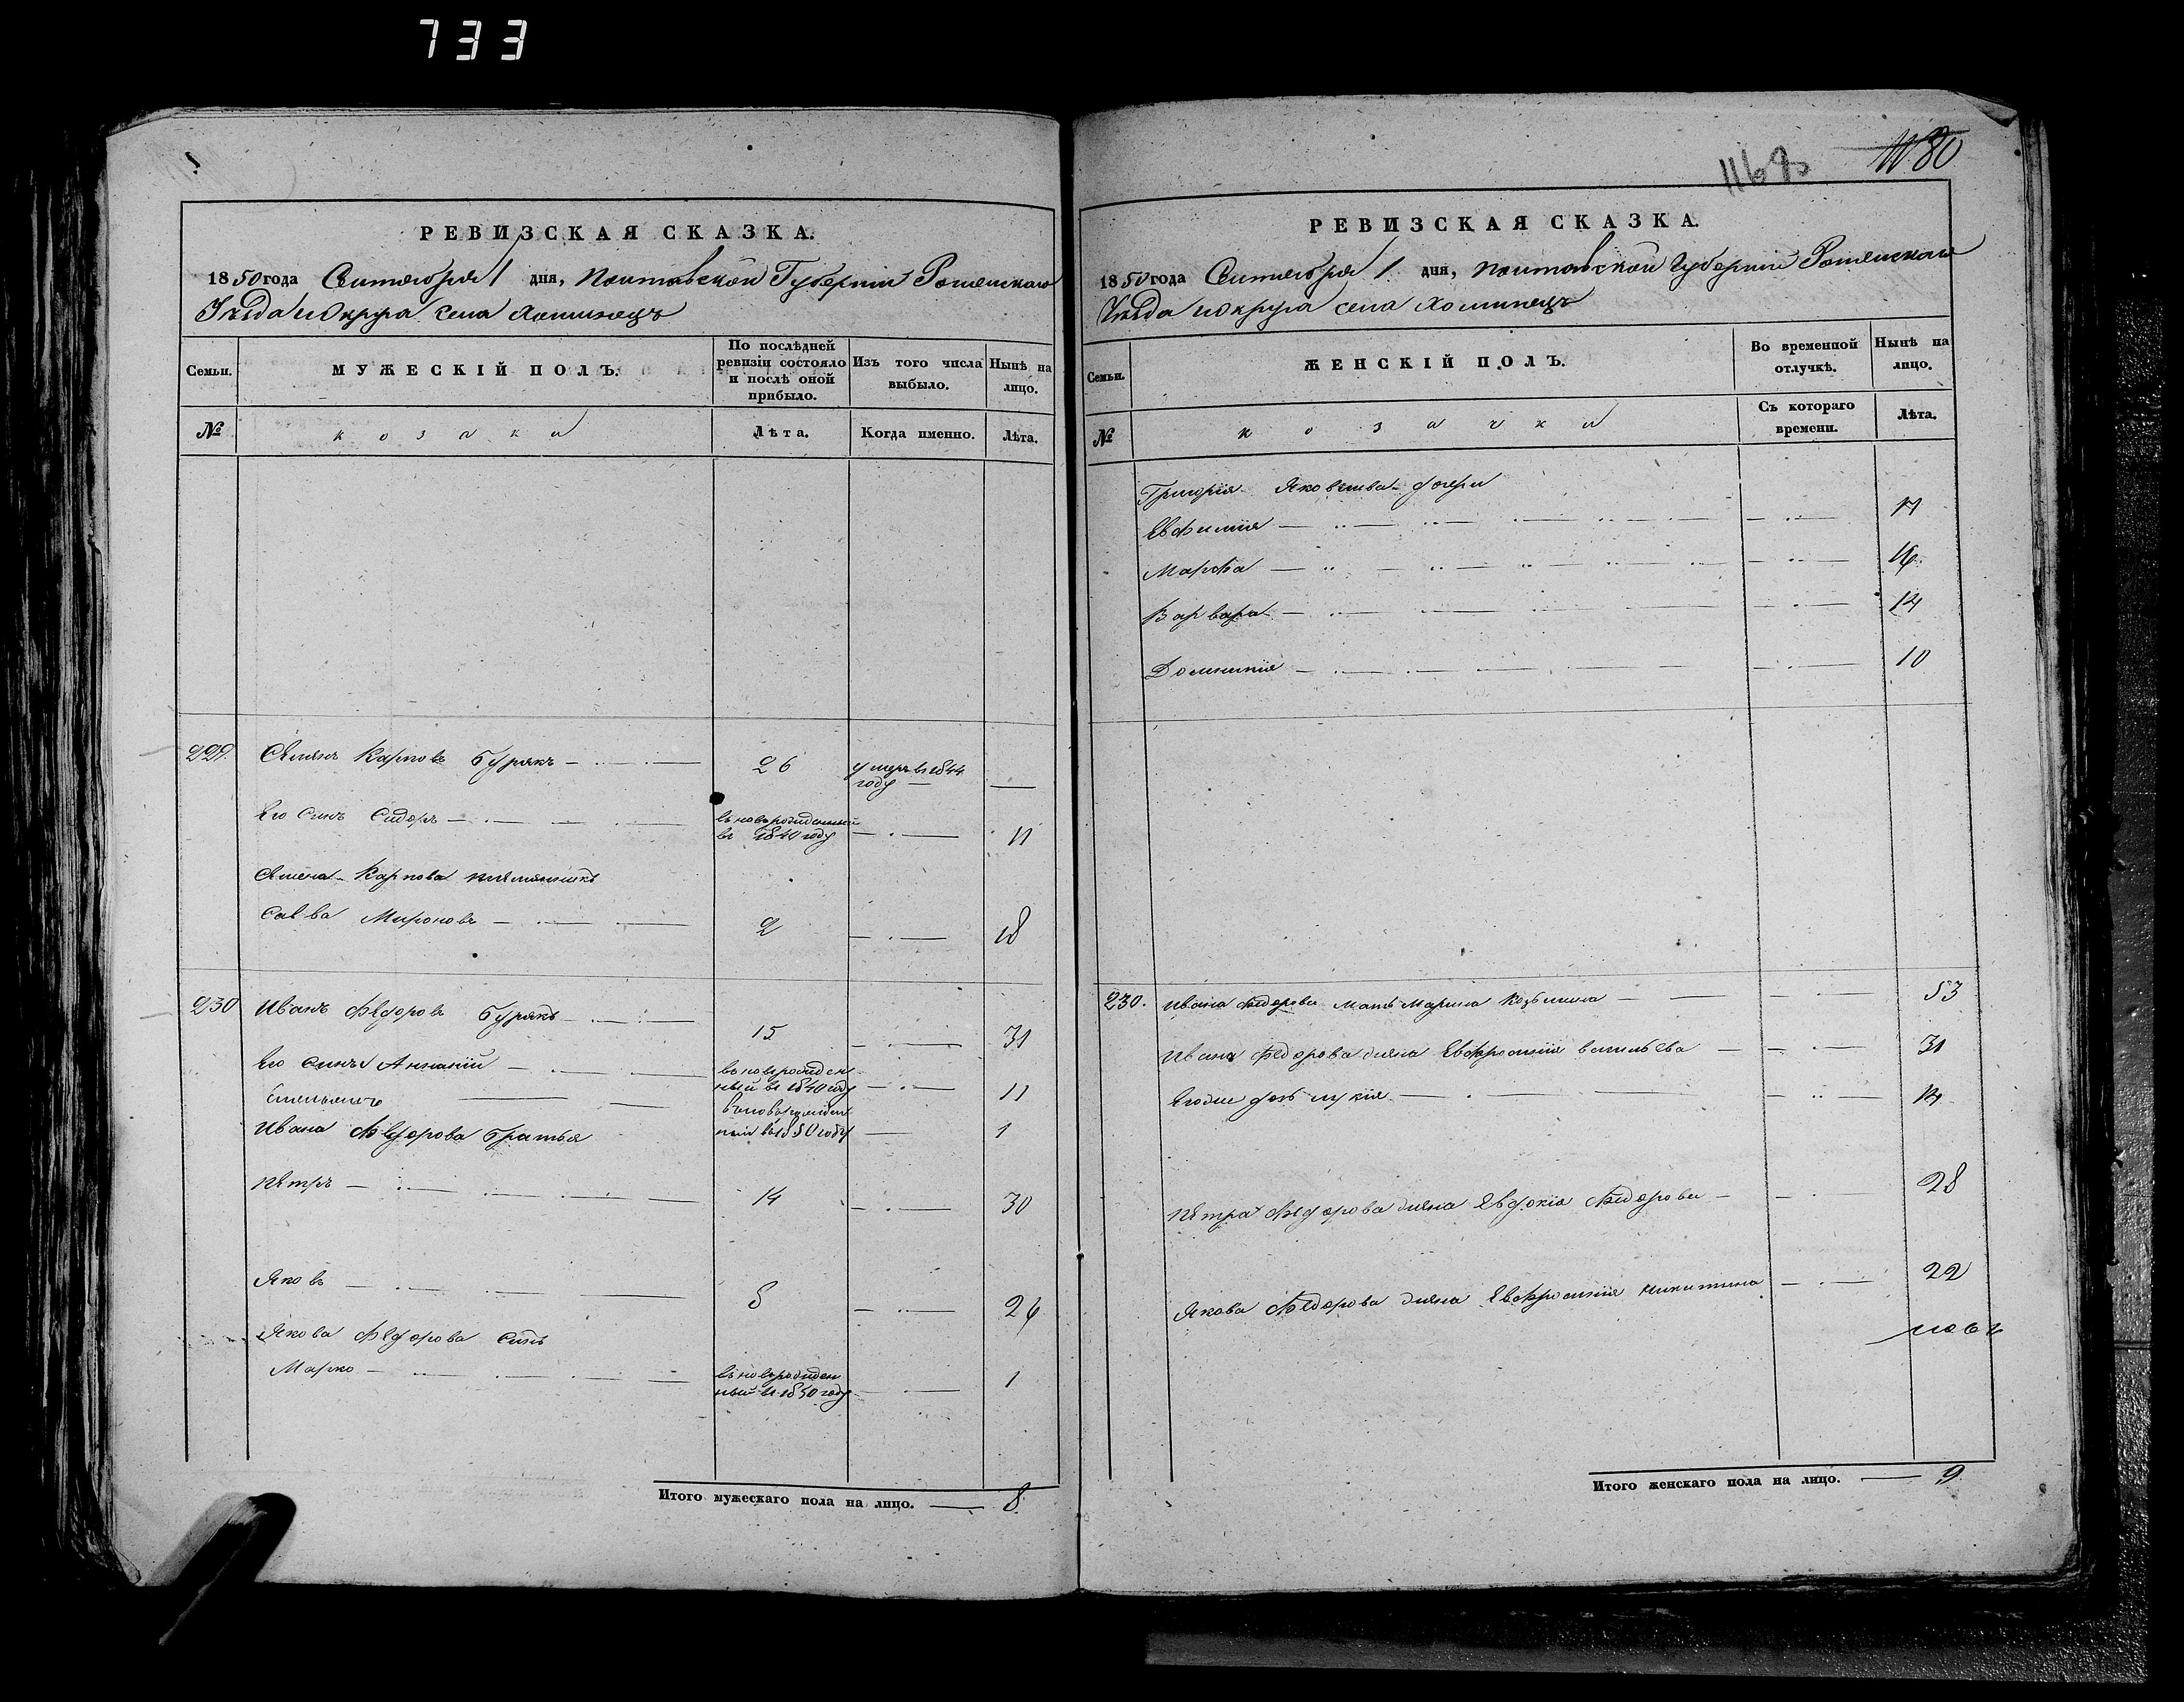 733
1168
80
РЕВИЗСКАЯ СКАЗКА.
1850 года Сентября 1 дня, Полтавской Губерніи Роменскаго
Уѣзда и Округа села Хоминецъ
Семьи.
МУЖЕСКІЙ ПОЛЪ.
По послѣдней ревизіи состояло и послѣ оной прибыло.
Изъ того числа выбыло.
Нынѣ на лицо.
№
козаки
Лѣта.
Когда именно.
Лѣта.
229. Карповъ Бурякъ 26 умеръ в 1844 году
Его Сынъ Сидоръ новорожденный въ 1840 году 11
Карпова племянникъ
Савва Мироновъ 2 18
230 Иванъ Федоровъ Бурякъ 15 31
Его Сины Ананій новорожденный въ 1840 году 11
новорожденный въ 1850 году 1
Ивана Федорова братья
Петръ 14 30
Яковъ 26
Якова Федорова Синъ
Марко новорожденный в 1850 году 1
Итого мужескаго пола на лицо. 8
РЕВИЗСКАЯ СКАЗКА.
1850 года Сентября 1 дня, Полтавской Губерніи Роменскаго
Уѣзда и Округа села Хоминецъ
Семьи.
ЖЕНСКІЙ ПОЛЪ.
Во временной отлучкѣ.
Нынѣ на лицо.
№
козачки
Съ котораго времени.
Лѣта.
Григорія Яковлева дочери
Евфимія
Марфа 16
Варвара 14
Домникія 10
230. Ивана Федорова мать Марина Козьмина 53
Ивана Федорова жена Евфросинія Васильева 31
Его же дочь Лукія
Петра Федорова жена Евдокія Федорова 28
Якова Федорова жена Евфросинія Никитина 22
Итого женскаго пола на лицо. 9